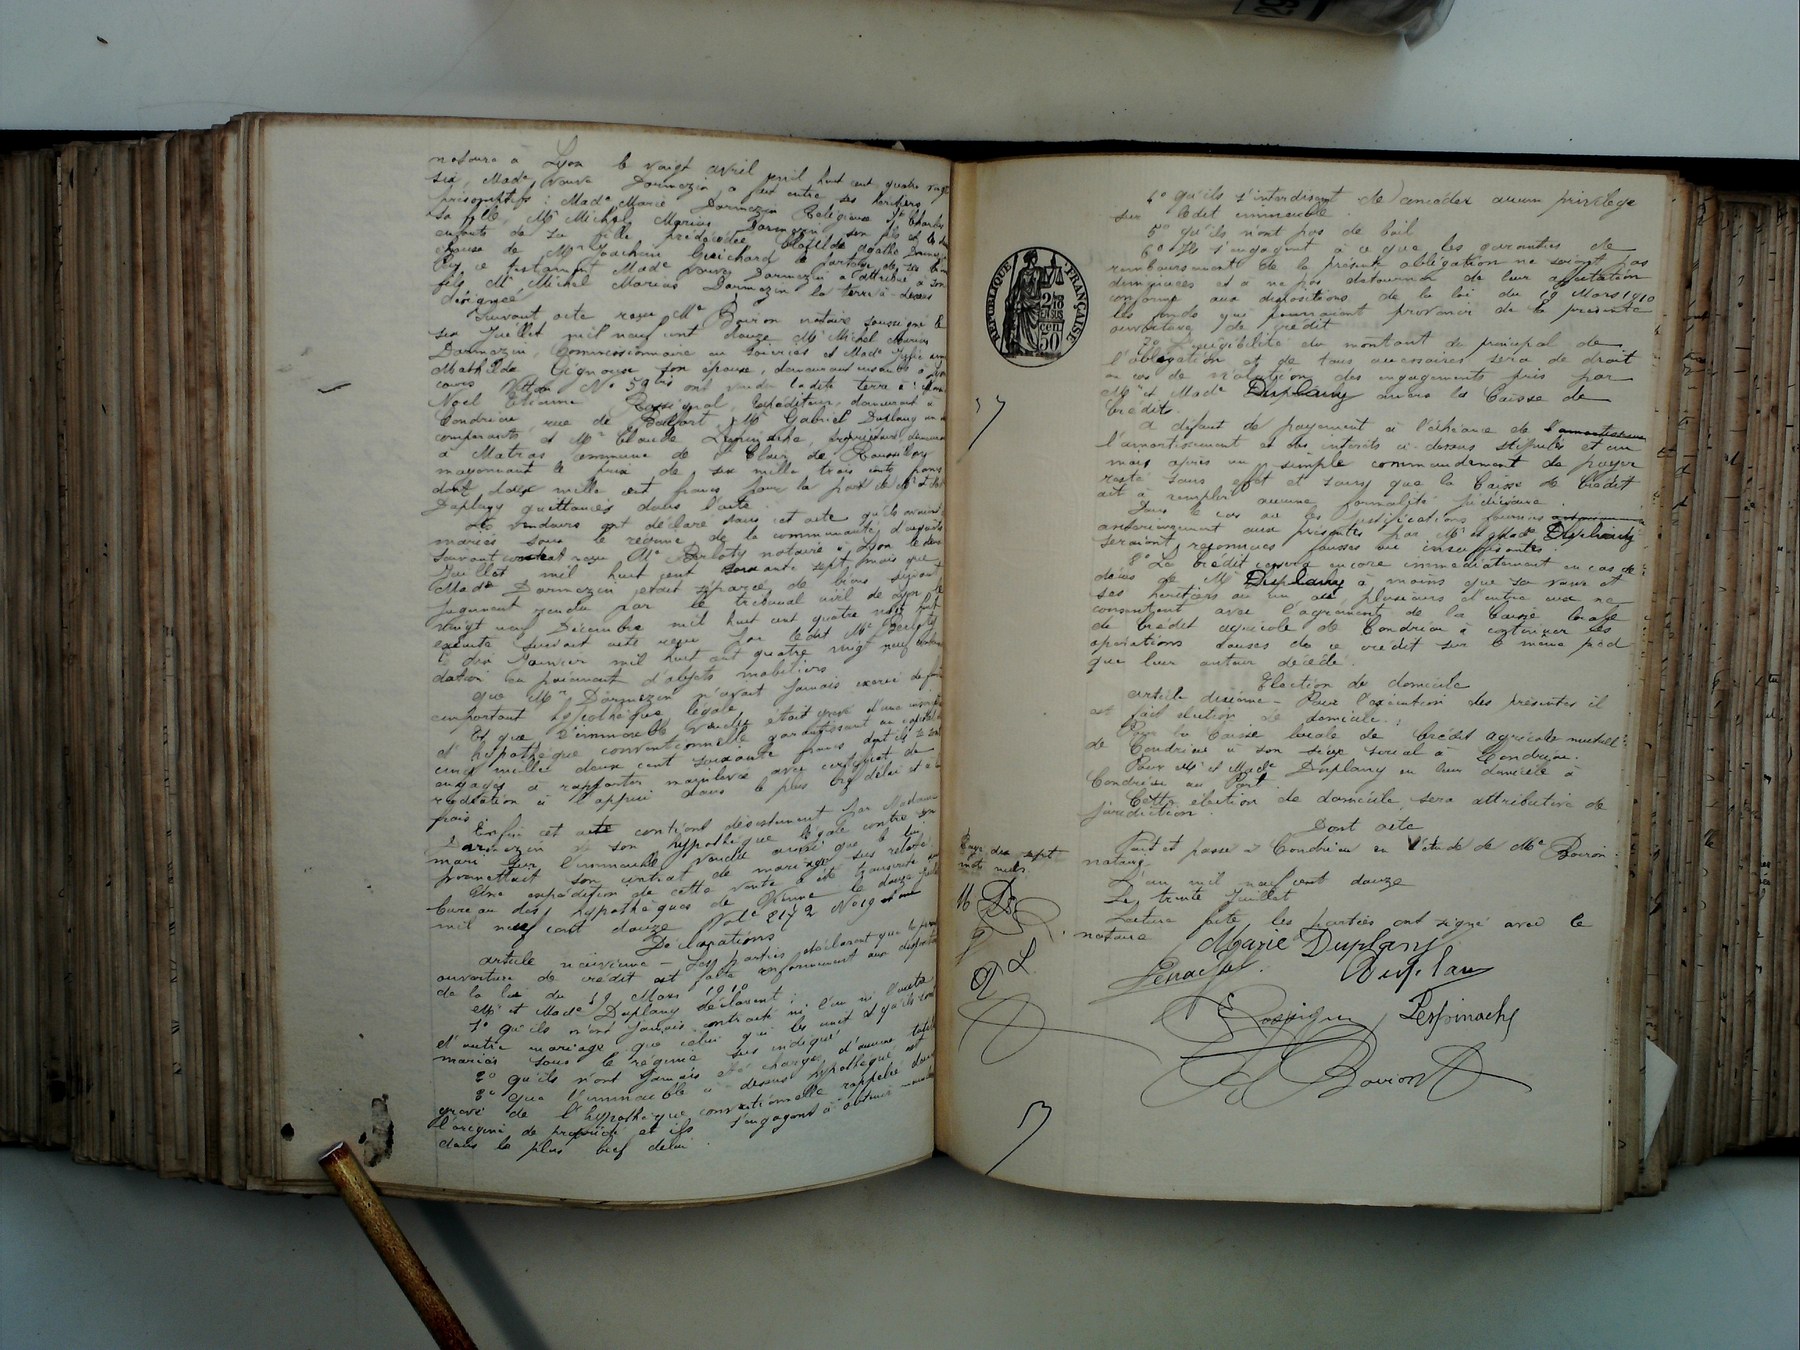 notaire à Lyon le vingt avril mil huit cent quatre vingt
six, Made Veuve Darmezin a fait entre ses héritiers
présomptifs : Made Marie Darmezin Religieuse St Charles
sa fille, Mr Michel Marius Darmezin son fils et les
enfants de sa fille prédécédée Clotilde Agathe Darmezin
épouse de Mr Joachim Guichard le partage de ses biens
Par ce testament Made Veuve Darmezin a attribué à son
fils Mr Michel Marius Darmezin la terre ci-dessus
désignée
Suivant acte reçu Me Boiron notaire soussigné le
six Juillet mil neuf cent douze Mr Michel Marius
Darmezin, Commissionnaire en soieries et Made
Mathilde Vignouse son épouse, demeurant ensemble à Lyon
cours Vitton No 59 bis ont vendu la dite terre à : Mr
Noel Etienne Rossignol, Expéditeur, demeurant à
Condrieu, rue de Belfort, Mr Gabriel Duplany
comparants et Mr Claude Lespinache, propriétaire, demeurant
à Matras commune de St Clair de Roussillon
moyennant le prix de six mille trois cents francs
dont deux mille cent francs pour la part de Mr et Made
Duplany quittancés dans l'acte.
Les vendeurs ont déclaré dans cet acte qu'ils étaient
mariés sous le régime de la communauté d'acquêts
suivant contrat reçu Me Berloty notaire à Lyon le dix
Juillet mil huit cent soixante sept, mais que
Made Darmezin était séparée de biens, suivant
Jugement rendu par le tribunal civil de Lyon le
vingt neuf Décembre mil huit cent quatre vingt huit
exécuté suivant acte reçu par ledit Me Berloty
le dix Janvier mil huit cent quatre vingt neuf
dation en paiement d'objets mobiliers
Que Mr Darmezin n'avait jamais exercé de fonctions
emportant hypothèque légale
Et que l'immeuble vendu était grevé d'une inscription
d'hypothèque conventionnelle garantissant un capital de
cinq mille deux cent soixante francs dont ils se sont
engagés à rapporter mainlevée avec certificat de
radiation à l'appui dans le plus bref délai et à leurs
frais
Enfin cet acte contient désistement par Madame
Darmezin de son hypothèque légale contre son
mari sur l'immeuble vendu ainsi que le lui
permettait son contrat de mariage sus relaté
Une expédition de cette vente a été transcrite au
bureau des hypothèques de Vienne le douze Juillet
mil neuf cent douze Vol 2172 No 19
Déclarations
article neuvième - Les parties déclarent que la présente
ouverture de crédit est faite conformément aux dispositions
de la loi du 19 Mars 1910
Mr et Made Duplany déclarent :
1o qu'ils n'ont jamais contracté ni l'un ni l'autre
d'autre mariage que celui qui les unit et qu'ils sont
mariés sous le régime sus indiqué
2o qu'ils n'ont jamais été chargés d'aucune tutelle
3o que l'immeuble ci dessus hypothéqué est
grevé de l'hypothèque conventionnelle rappelée dans
l'origine de propriété et ils s'engagent à obtenir
dans le plus bref délai
4o qu'ils s'interdisent de concéder aucun privilège
sur ledit immeuble.
5o qu'ils n'ont pas de bail
6o Ils s'engagent à ce que les garanties de
remboursement de la présente obligation ne soient pas
diminuées et à ne pas détourner de leur affectation
conforme aux dispositions de la loi du 19 Mars 1910
les fonds qui pourraient provenir de la présente
ouverture de crédit
7o L'exigibilité du montant du principal de
l'obligation et de tous accessoires sera de droit
en cas de violation des engagements pris par
Mr et Made Duplany envers la Caisse de
Crédit.
A défaut de payement à l'échéance de l'amortissement
l'amortissement et des intérêts ci-dessus stipulés et un
mois après un simple commandement de payer
resté sans effet et sans que la Caisse de Crédit
ait à remplir aucune formalité judiciaire.
Dans le cas où les justifications fournies
antérieurement aux présentes par Mr et Made Duplany
seraient reconnues fausses ou insuffisantes
8o Le crédit cessera encore immédiatement en cas de
décès de Mr Duplany à moins que sa veuve et
ses héritiers ou un ou plusieurs d'entre eux ne
consentent avec l'agrément de la Caisse locale
de Crédit agricole de Condrieu à continuer les
opérations causes de ce crédit sur le même pied
que leur auteur décédé.
Election de domicile
article dixième - Pour l'exécution des présentes il
est fait élection de domicile :
Pour la Caisse locale de Crédit agricole mutuel
de Condrieu à son siège social à Condrieu.
Pour Mr et Made Duplany en leur domicile à
Condrieu au Port
Cette élection de domicile sera attributive de
juridiction.
Dont acte
Fait et passé à Condrieu en l'étude de Me Boiron
notaire
L'an mil neuf cent douze
Le trente Juillet
Lecture faite, les parties ont signé avec le
notaire
Marie Duplany
Duplany
Rossignol Lespinache
Boiron
Rayé dix sept
mots nuls
RÉPUBLIQUE FRANÇAISE
2/10
EN SUS
cen.
50